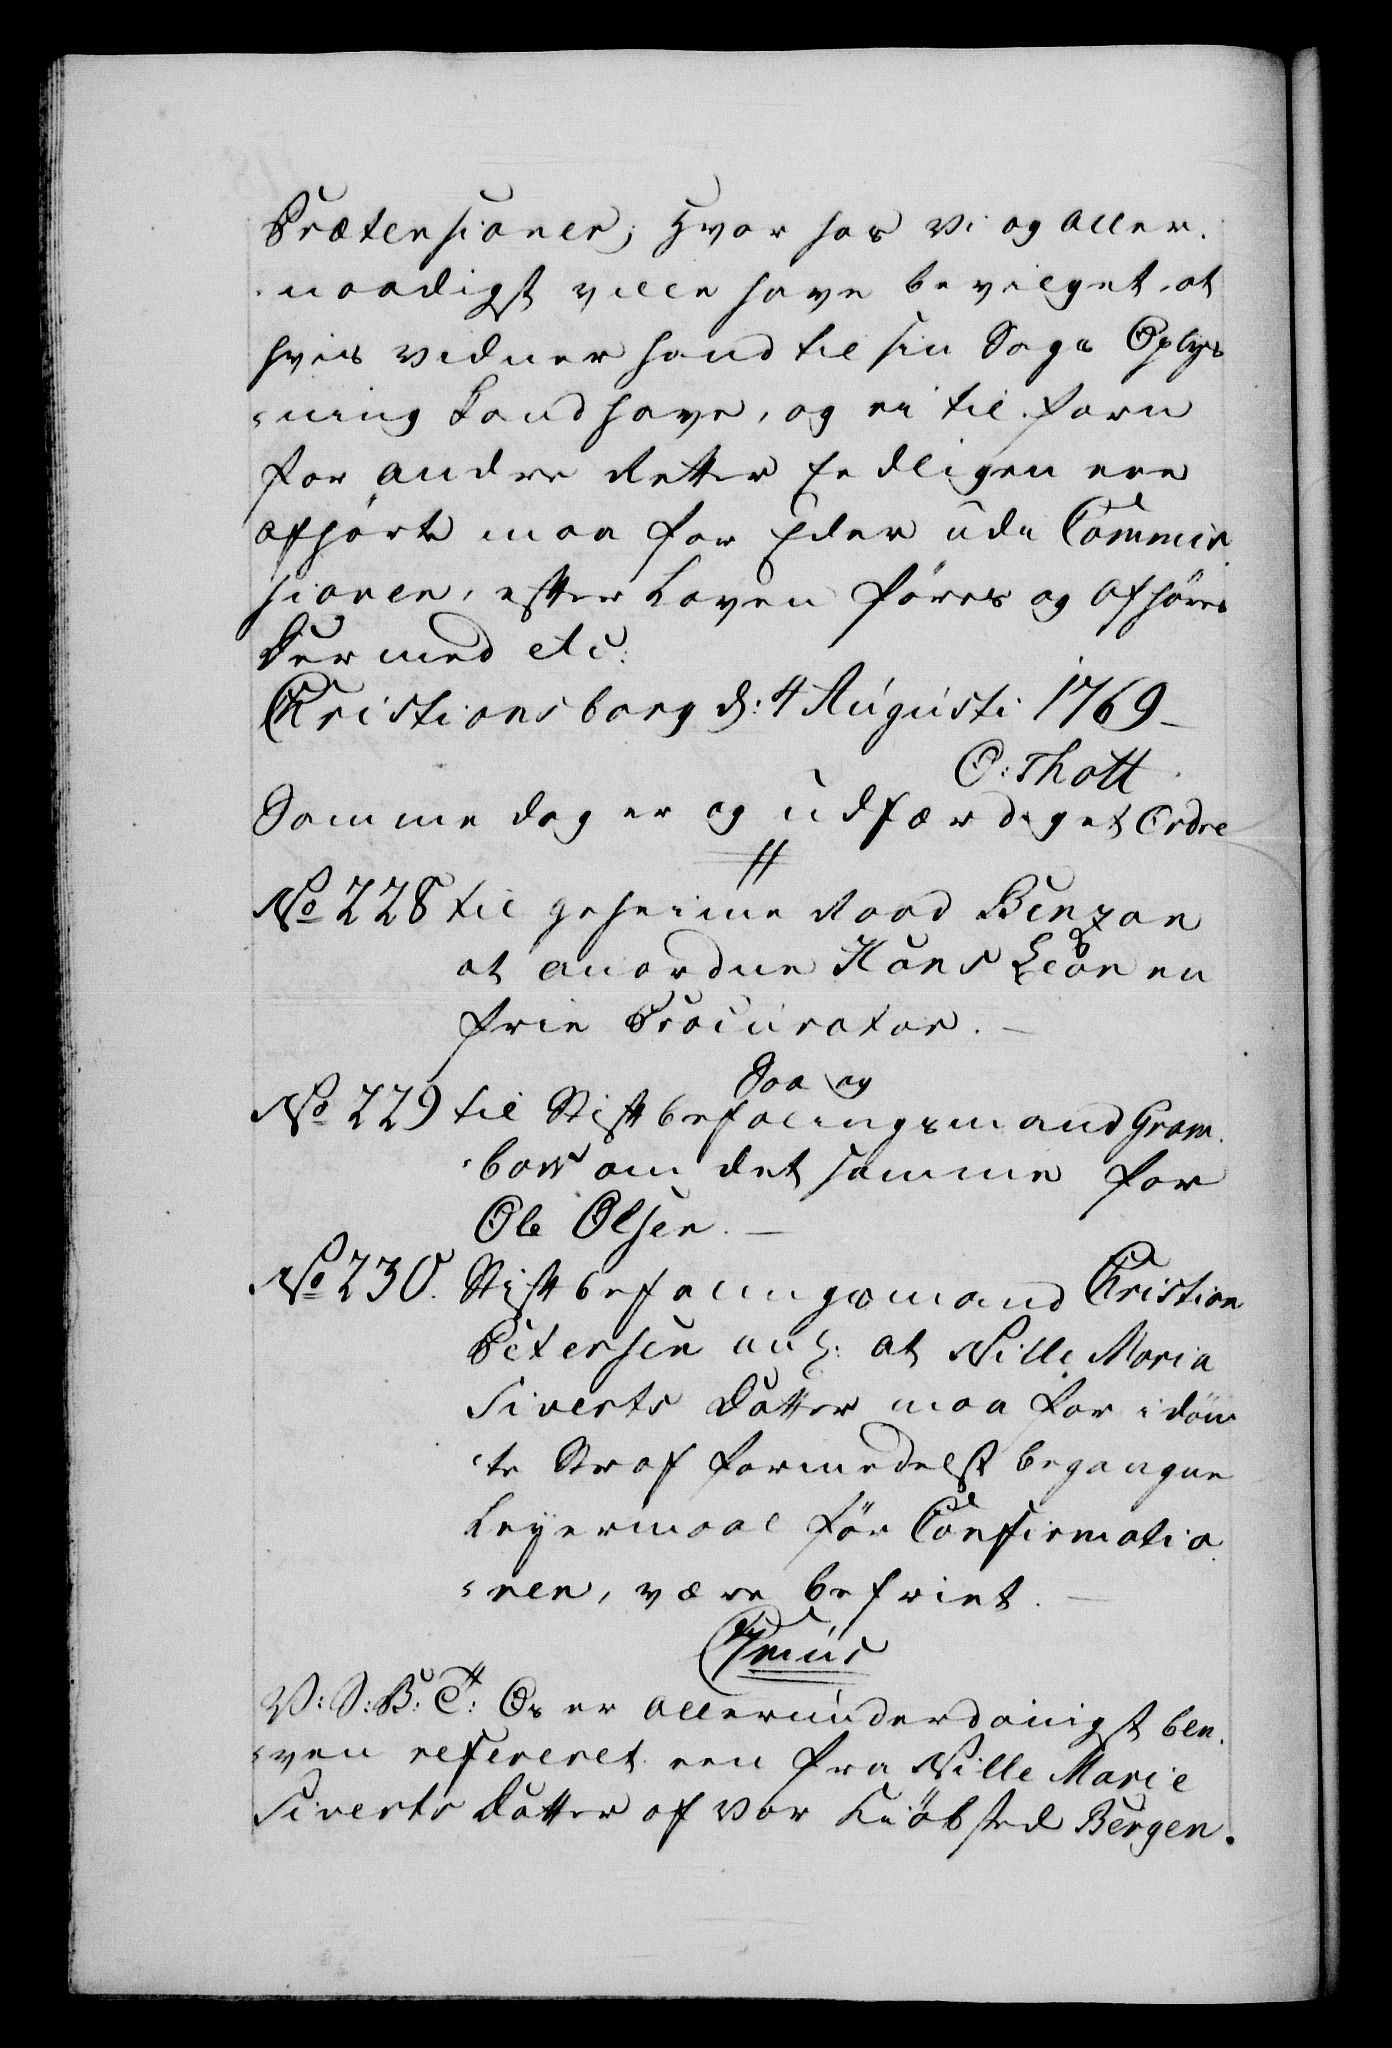 Prætensioner; Hvor hos vi og aller-
naadigst ville have bevilget, at
hvis vidner hand til sin Sags Oplys
ning kand have, og ei til forn
for andre Retter Eedligen ere
afhørte maa for Eder udi Commis
sionen, efter Loven føres og afhøres
Der med etc:
Christiansborg d: 4 Augusti 1769
O: Thott
Samme dag er og udfærdiget Ordre
No 228 til geheime Raad Benzon
at anordne Hans Leon en
frie Procurator.
Saa og
No 229 til Stiftbefalingsmand Gram-
bow om det samme for
Ole Olsen.
No 230. Stiftbefalingsmand Christian
Petersen anl: at Nille Maria
Siverts Datter maa for idøm
te Straf formedelst begangne
Leyermaal før Confirmatio
nen, være befriet.
V: S: B: T: Os er allerunderdanigst ble-
ven refereret een fra Nille Marie
Siverts Datter af vor Kiøbsted Bergen.